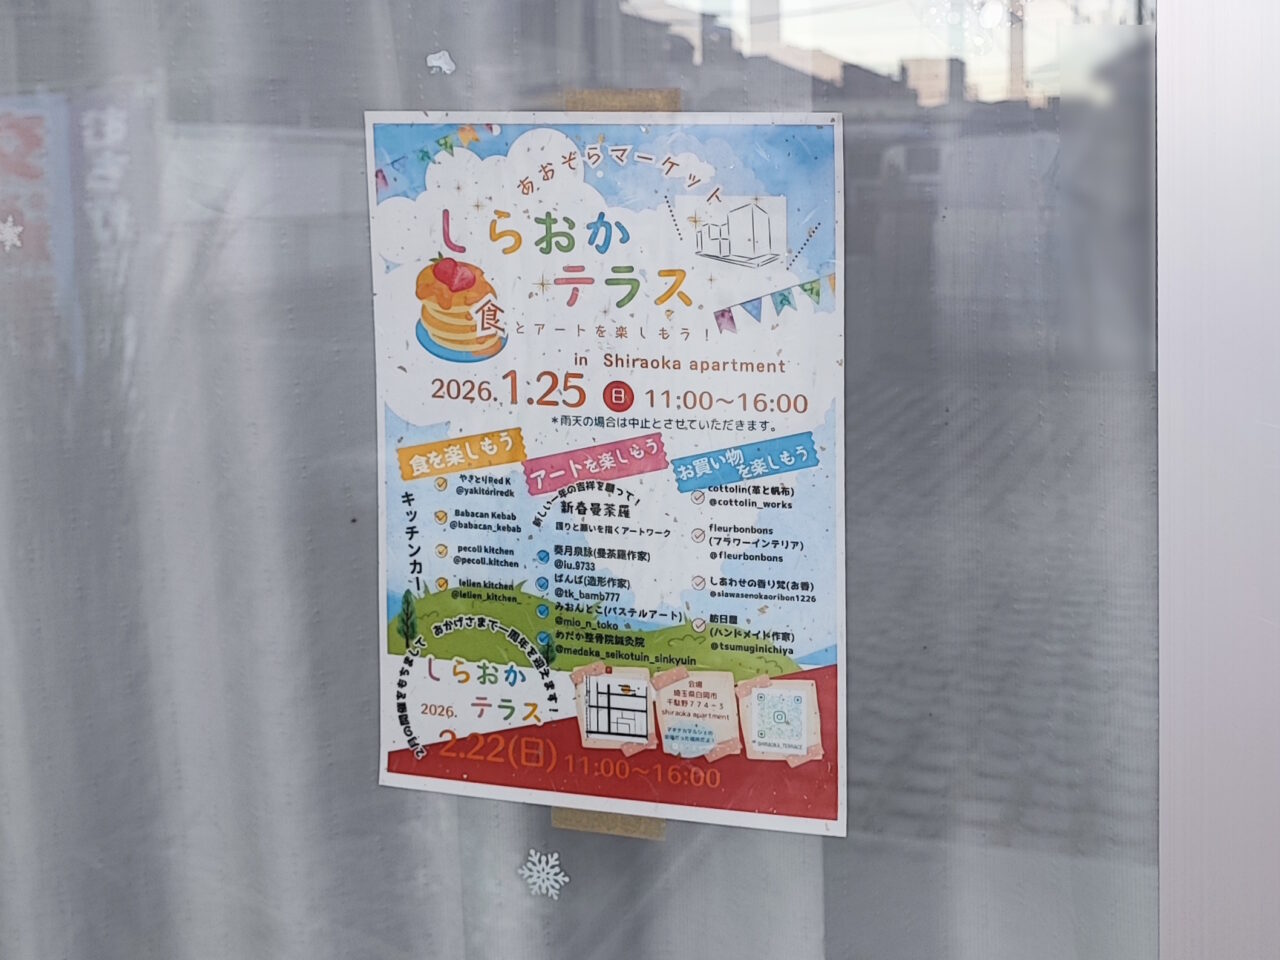 あおぞらマーケット
しらおか
テラス
食とアートを楽しもう！
in Shiraoka apartment
2026.1.25 日 11:00～16:00
＊雨天の場合は中止とさせていただきます。
食を楽しもう
キッチンカー
やきとりRed K
@yakitoriredk
Babacan Kebab
@babacan_kebab
pecoli kitchen
@pecoli.kitchen
lelien kitchen
@lelien_kitchen_
アートを楽しもう
新しい一年の吉祥を願って！
新春曼荼羅
護りと願いを描くアートワーク
奏月泉詠(曼荼羅作家)
@iu.9733
ばんば(造形作家)
@tk_bamb777
みおんとこ(パステルアート)
@mio_n_toko
めだか整骨院鍼灸院
@medaka_seikotuin_sinkyuin
お買い物を楽しもう
cottolin(革と帆布)
@cottolin_works
fleurbonbons
(フラワーインテリア)
@fleurbonbons
しあわせの香り梵(お香)
@siawasenokaoribon1226
紡日屋
(ハンドメイド作家)
@tsumuginichiya
2月の開催をもちまして おかげさまで一周年を迎えます！
しらおか
2026. テラス
2.22(日) 11:00～16:00
会場
埼玉県白岡市
千駄野７７４－３
shiraoka apartment
SHIRAOKA_TERRACE